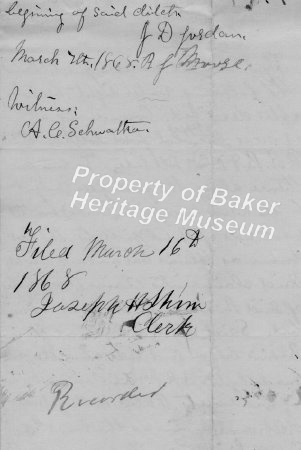 begining of said ditch
J D Jordan.
March 7th. 1868. A J Moore.
Witness:
A. C. Schwatka.
Property of Baker
Heritage Museum
Filed March 16th
1868
Joseph H Shinn
Clerk
Recorded